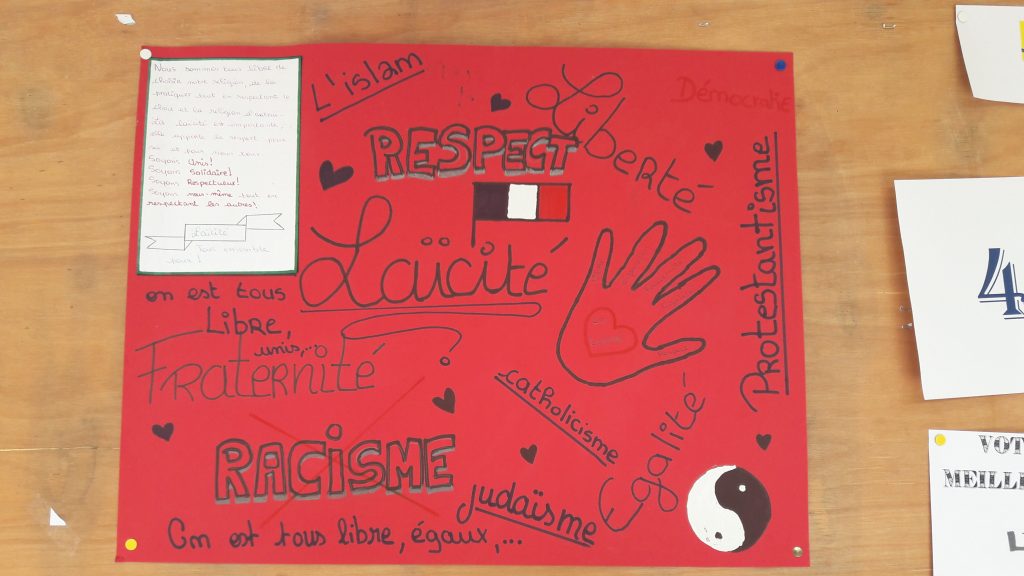 Nous sommes tous libre de
choisir notre religion, de la
pratiquer tout en respectant le
et la religion d'autrui.
La laïcité est importante,
elle apporte le respect pour
soi et pour nous tous
Soyons Unis!
Soyons Solidaire!
Soyons Respectueux!
Soyons nous-même tout en
respectant les autres!
Laïcité
Tous ensemble
pour !
L'islam
Liberté
Démocratie
RESPECT
Protestantisme
Laïcité
on est tous
Libre,
unis,...
Fraternité
catholicisme
Égalité
RACISME
judaïsme
On est tous libre, égaux,...
4
VOT
MEILLE